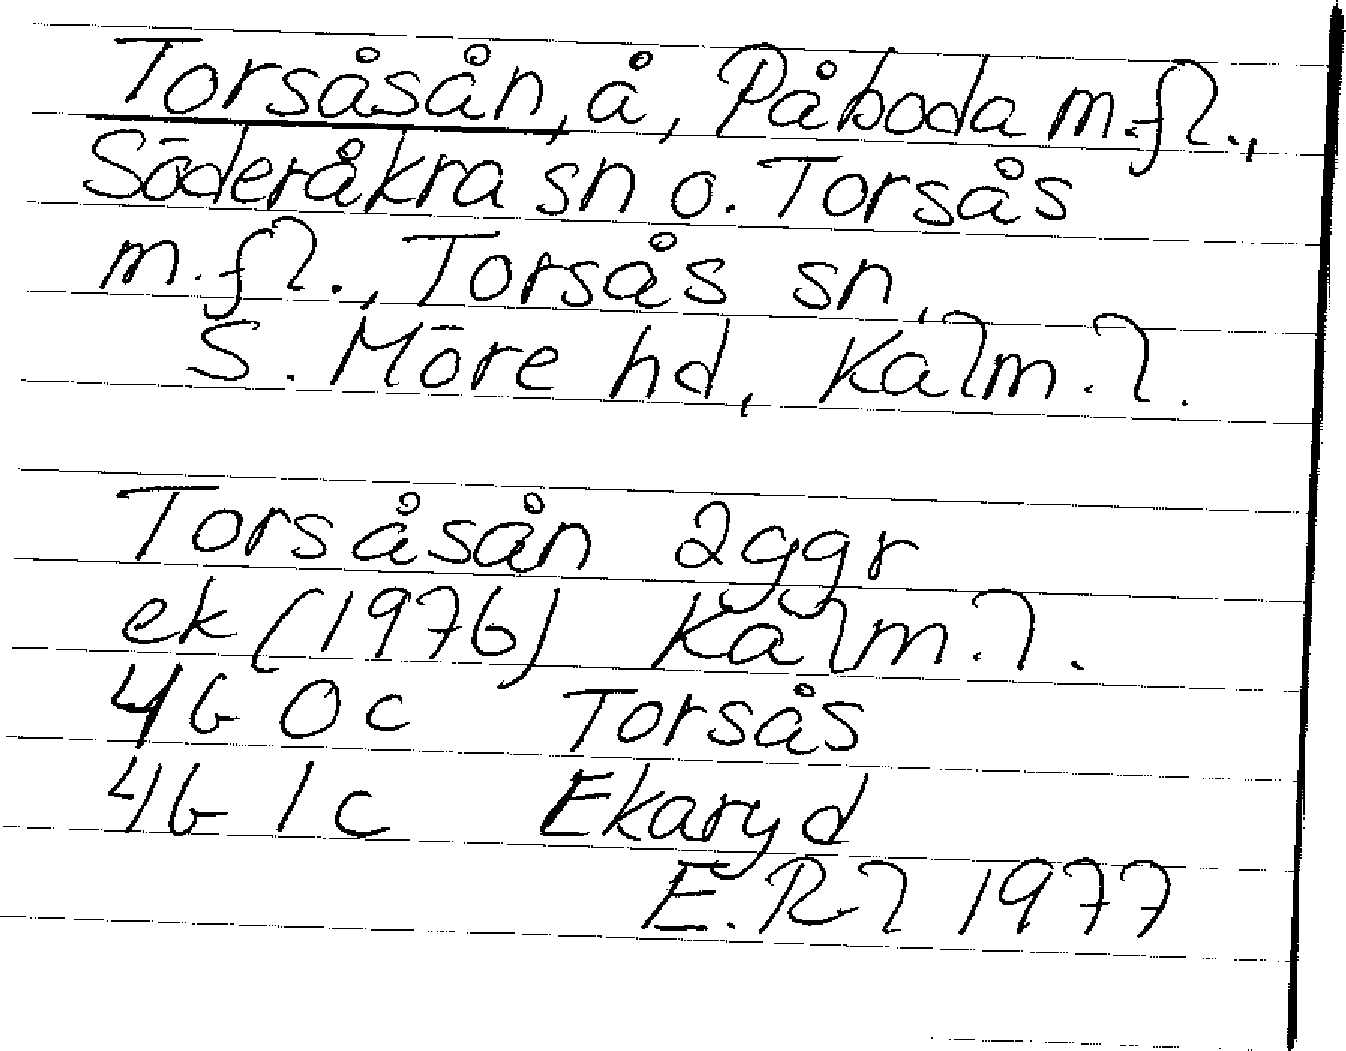 Torsåsån, å, Påboda m.fl.,
Söderåkra sn o. Torsås
m.fl., Torsås sn,
S. Möre hd, Kalm.l.
Torsåsån 2ggr
ek (1976) Kalm.l.
4G 0c Torsås
4G 1c Ekaryd
E.Rl 1977